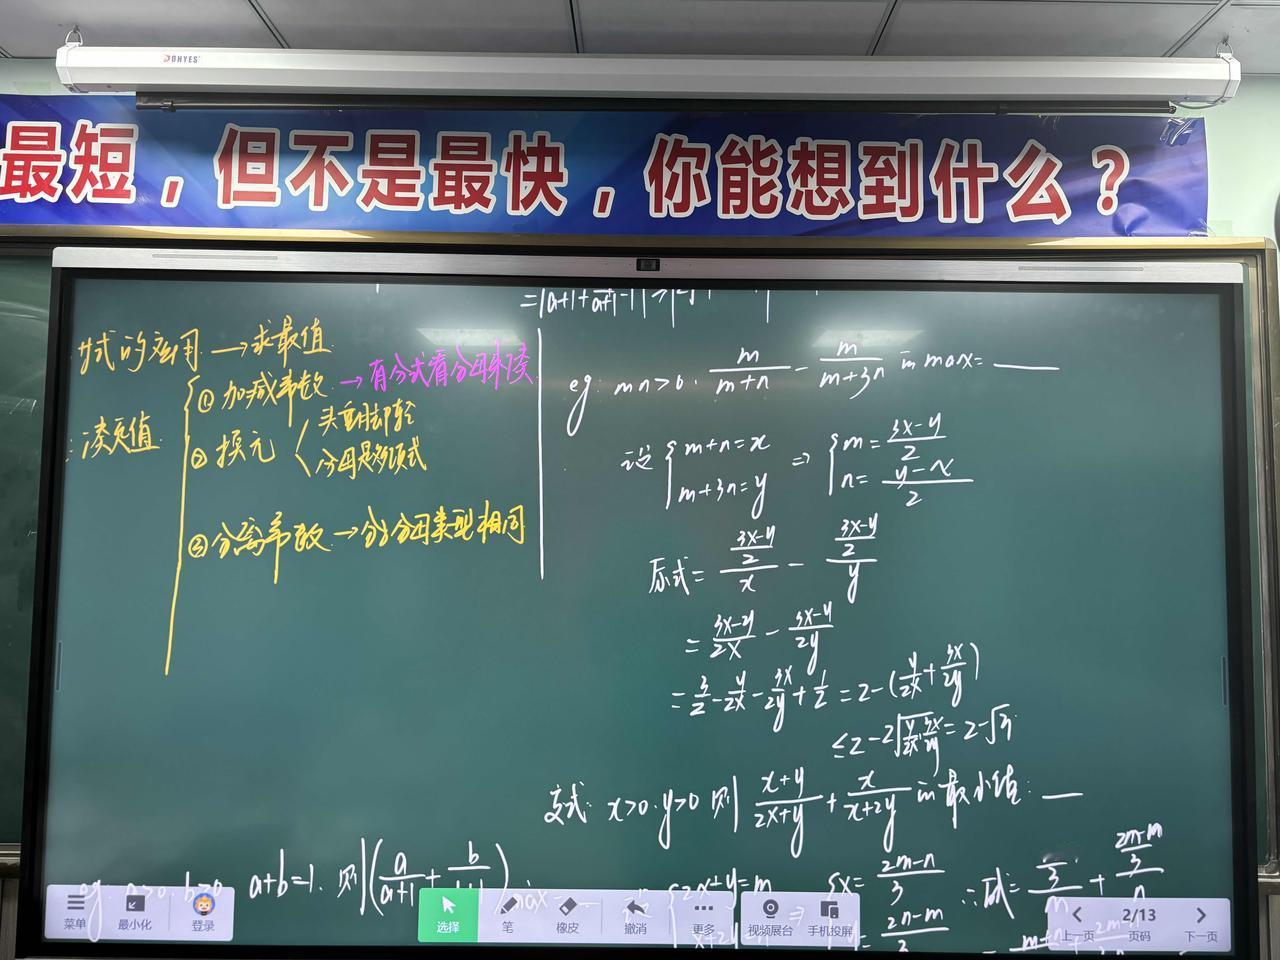 DONYES
最短，但不是最快，你能想到什么？
式的应用 → 求最值
凑定值
① 加减常数 → 有分式看分母来凑
② 换元
头重脚轻
分母是多项式
③ 分离常数 → 分子分母类型相同
eg: mn>0. m/(m+n) - m/(m+3n) 的max= ____
设 { m+n=x ⇒ { m=(3x-y)/2
m+3n=y n=(y-x)/2
原式= ((3x-y)/2)/x - ((3x-y)/2)/y
= (3x-y)/2x - (3x-y)/2y
= 3/2 - y/2x - 3x/2y + 1/2 = 2-(y/2x + 3x/2y)
≤2-2√(y/2x · 3x/2y) = 2-√3
变式: x>0. y>0 则 (x+y)/(2x+y) + x/(x+2y) 的最小值: __
eg: a>0. b>0 a+b=1. 则 (a/(a+1) + b/(b+1))max=
{ 2x+y=m ⇒ { x=(2m-n)/3
y=(2n-m)/3
菜单
最小化
登录
选择
笔
橡皮
撤消
更多
视频展台
手机投屏
上一页
2/13
页码
下一页